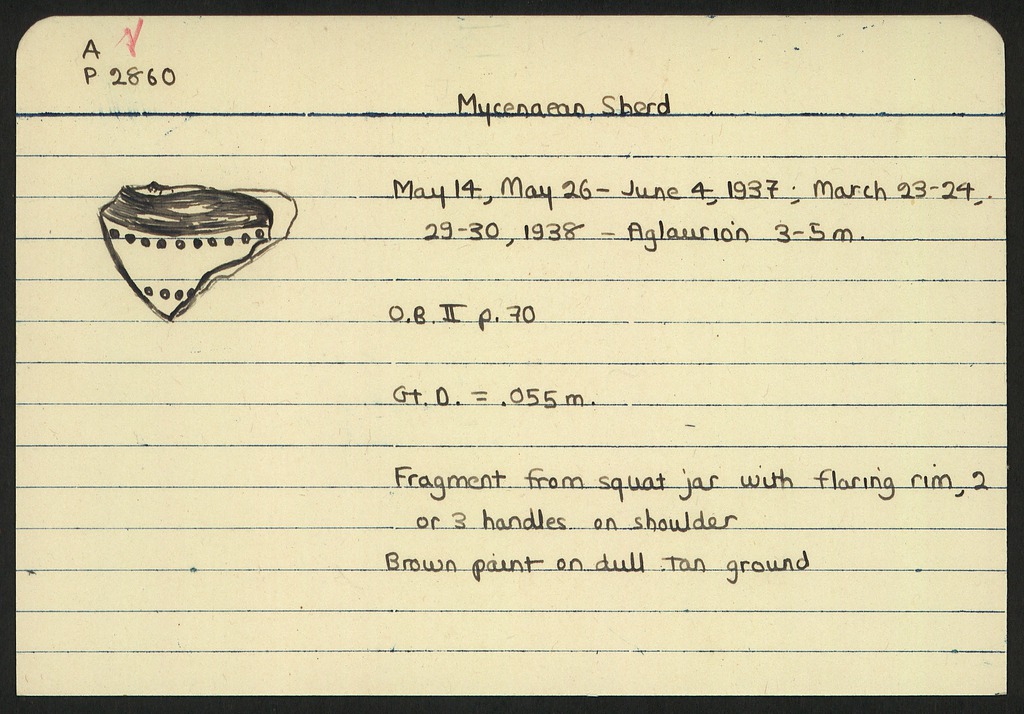 A
P 2860
Mycenaean Sherd
May 14, May 26 - June 4, 1937 ; March 23-24,
29-30, 1938 - Aglaurion 3-5 m.
O.B. II p. 70
Gt. D. = .055 m.
Fragment from squat jar with flaring rim, 2
or 3 handles on shoulder
Brown paint on dull tan ground